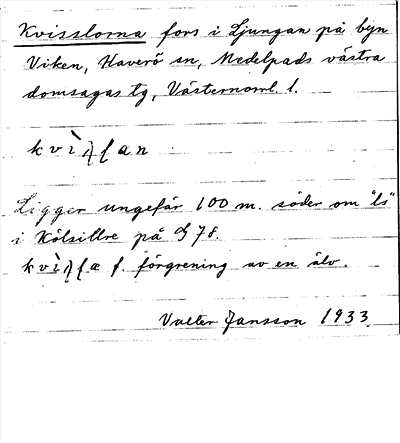 Kvisslorna fors i Ljungan på byn
Viken, Haverö sn, Medelpads västra
domsagas tg, Västernorrl. l.
Ligger ungefär 100 m. söder om "ls"
i Kölsillre på G 78.
f. förgrening av en älv.
Valter Jansson 1933.